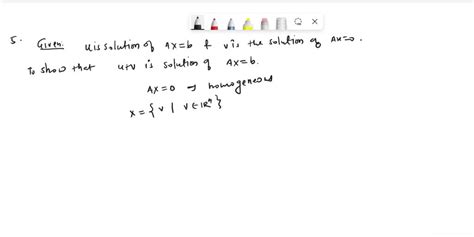 5. Given: u is solution of Ax=b & v is the solution of Ax=0.
To show that u+v is solution of Ax=b.
Ax=0 → homogeneous
x={v | v∈ℝⁿ}